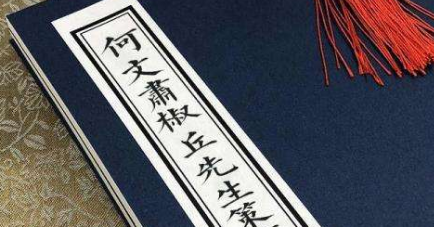 何文肅椒丘先生策